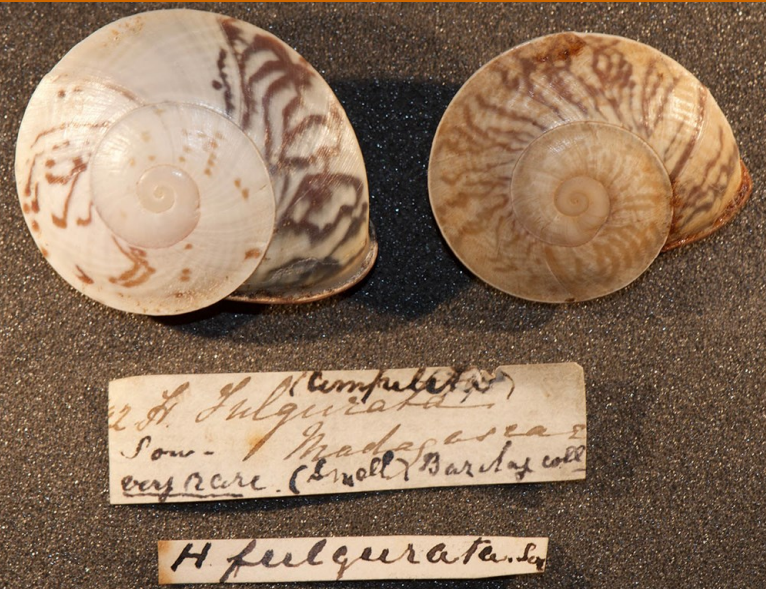 2 H. Fulgurata
Sow. Madagascar
very rare. (Small) Barclay coll
H. fulgurata. Sow